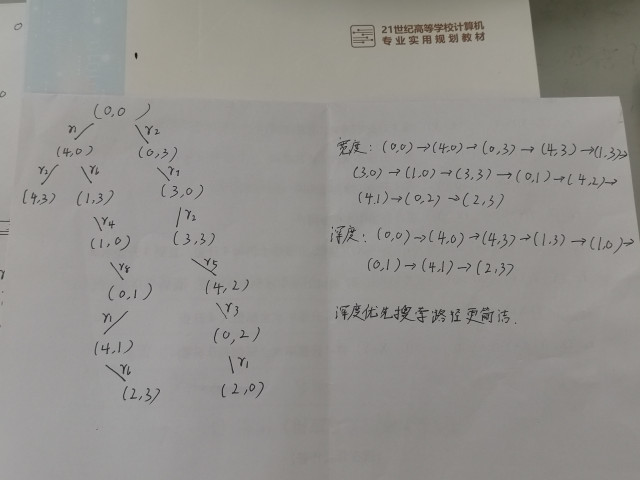 21世纪高等学校计算机
专业实用规划教材
(0,0)
r1 r2
(4,0) (0,3)
r2 r6 r7
(4,3) (1,3) (3,0)
r4 r2
(1,0) (3,3)
r8 r5
(0,1) (4,2)
r1 r3
(4,1) (0,2)
r6 r1
(2,3) (2,0)
宽度: (0,0)→(4,0)→(0,3)→(4,3)→(1,3)→
(3,0)→(1,0)→(3,3)→(0,1)→(4,2)→
(4,1)→(0,2)→(2,3)
深度: (0,0)→(4,0)→(4,3)→(1,3)→(1,0)→
(0,1)→(4,1)→(2,3)
深度优先搜索路径更简洁.